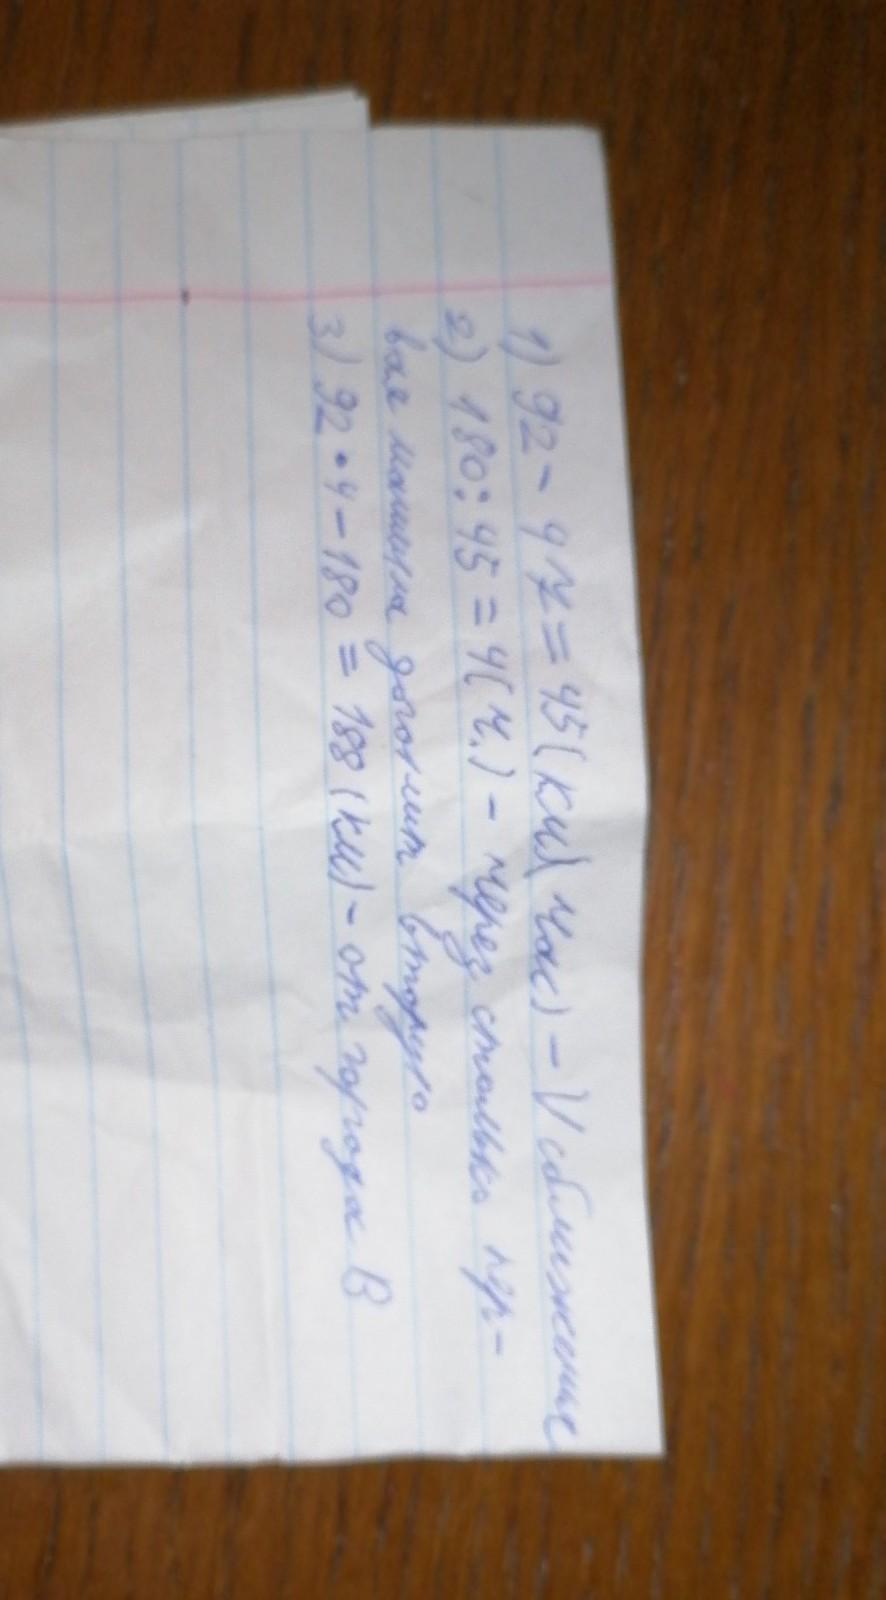 1) 92 - 47 = 45 (км/час) - V сближение
2) 180 : 45 = 4 (ч.) - через столько пер-
вая машина догонит вторую
3) 92 • 4 - 180 = 188 (км) - от города В